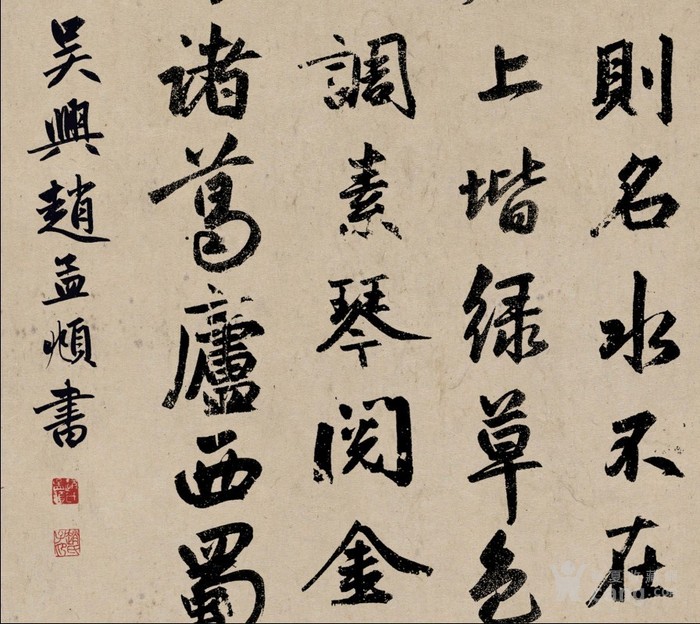 則名水不在
上堦緑草色
調素琴閱金
諸葛廬西蜀
吳興趙孟頫書